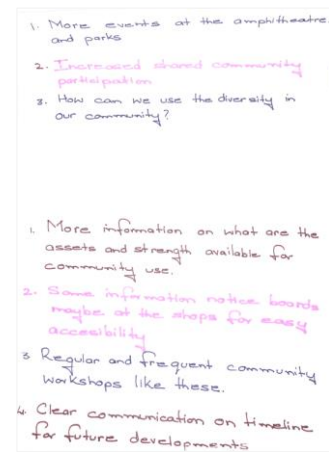 1. More events at the amphitheatre
and parks
2. Increased shared community
participation
3. How can we use the diversity in
our community?
1. More information on what are the
assets and strength available for
community use.
2. Some information notice boards
maybe at the shops for easy
accesibility
3 Regular and frequent community
workshops like these.
4. Clear communication on timeline
for future developments